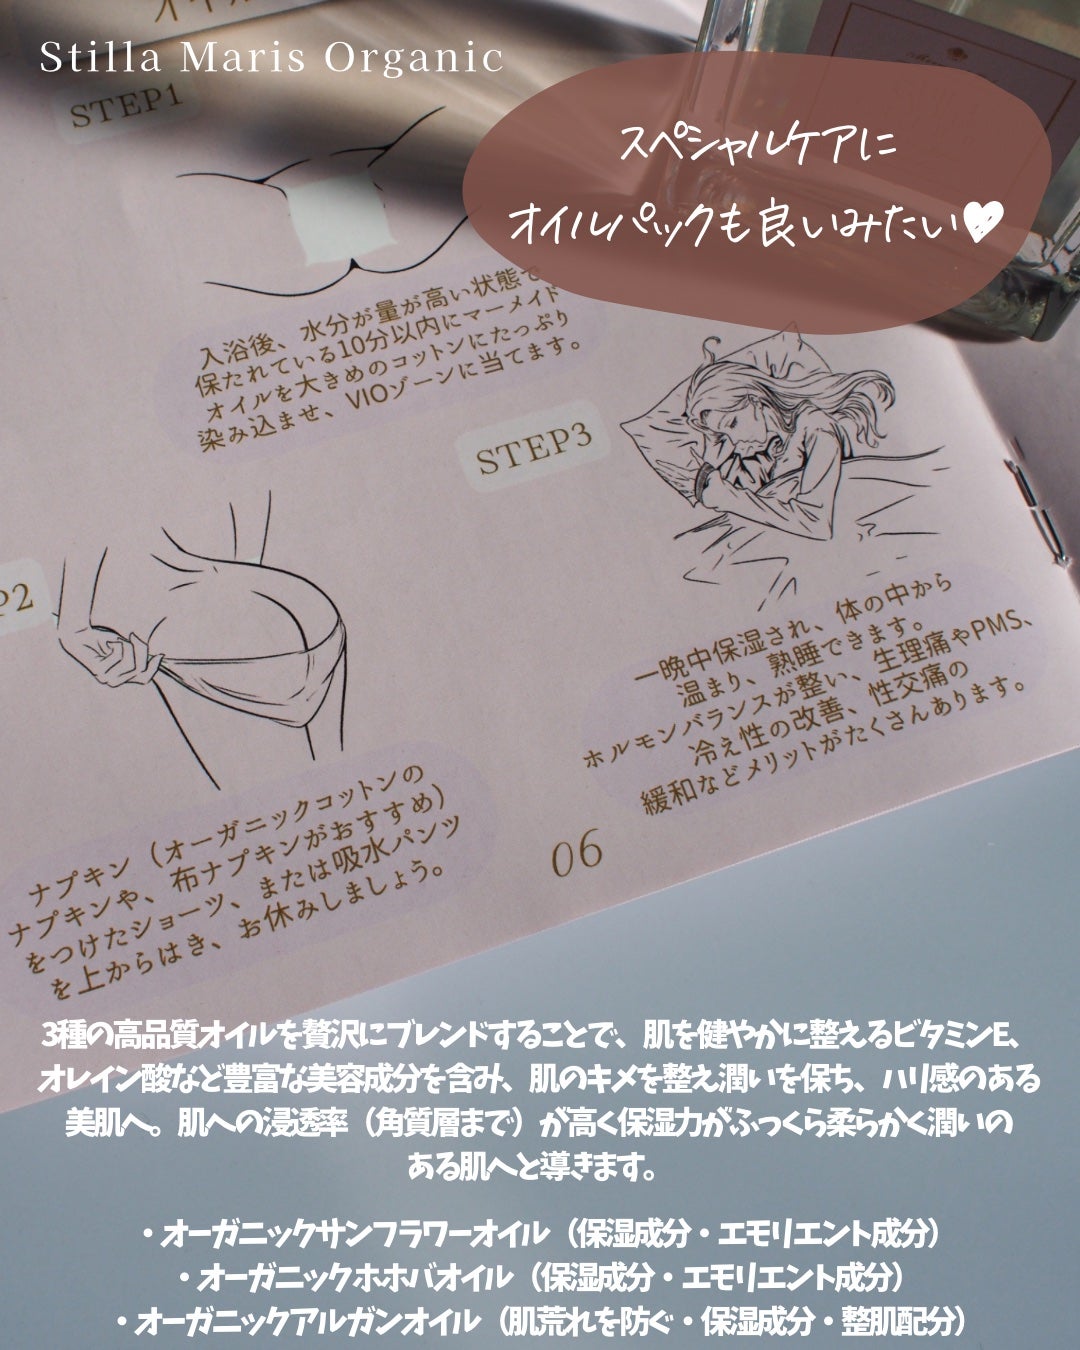 Stilla Maris Organic
スペシャルケアに
オイルパックも良いみたい♥
STEP1
入浴後、水分が量が高い状態で
保たれている10分以内にマーメイド
オイルを大きめのコットンにたっぷり
染み込ませ、VIOゾーンに当てます。
P2
ナプキン（オーガニックコットンの
ナプキンや、布ナプキンがおすすめ）
をつけたショーツ、または吸水パンツ
を上からはき、お休みしましょう。
STEP3
一晩中保湿され、体の中から
温まり、熟睡できます。
ホルモンバランスが整い、生理痛やPMS、
冷え性の改善、性交痛の
緩和などメリットがたくさんあります。
06
3種の高品質オイルを贅沢にブレンドすることで、肌を健やかに整えるビタミンE、
オレイン酸など豊富な美容成分を含み、肌のキメを整え潤いを保ち、ハリ感のある
美肌へ。肌への浸透率（角質層まで）が高く保湿力がふっくら柔らかく潤いの
ある肌へと導きます。
・オーガニックサンフラワーオイル（保湿成分・エモリエント成分）
・オーガニックホホバオイル（保湿成分・エモリエント成分）
・オーガニックアルガンオイル（肌荒れを防ぐ・保湿成分・整肌配分）